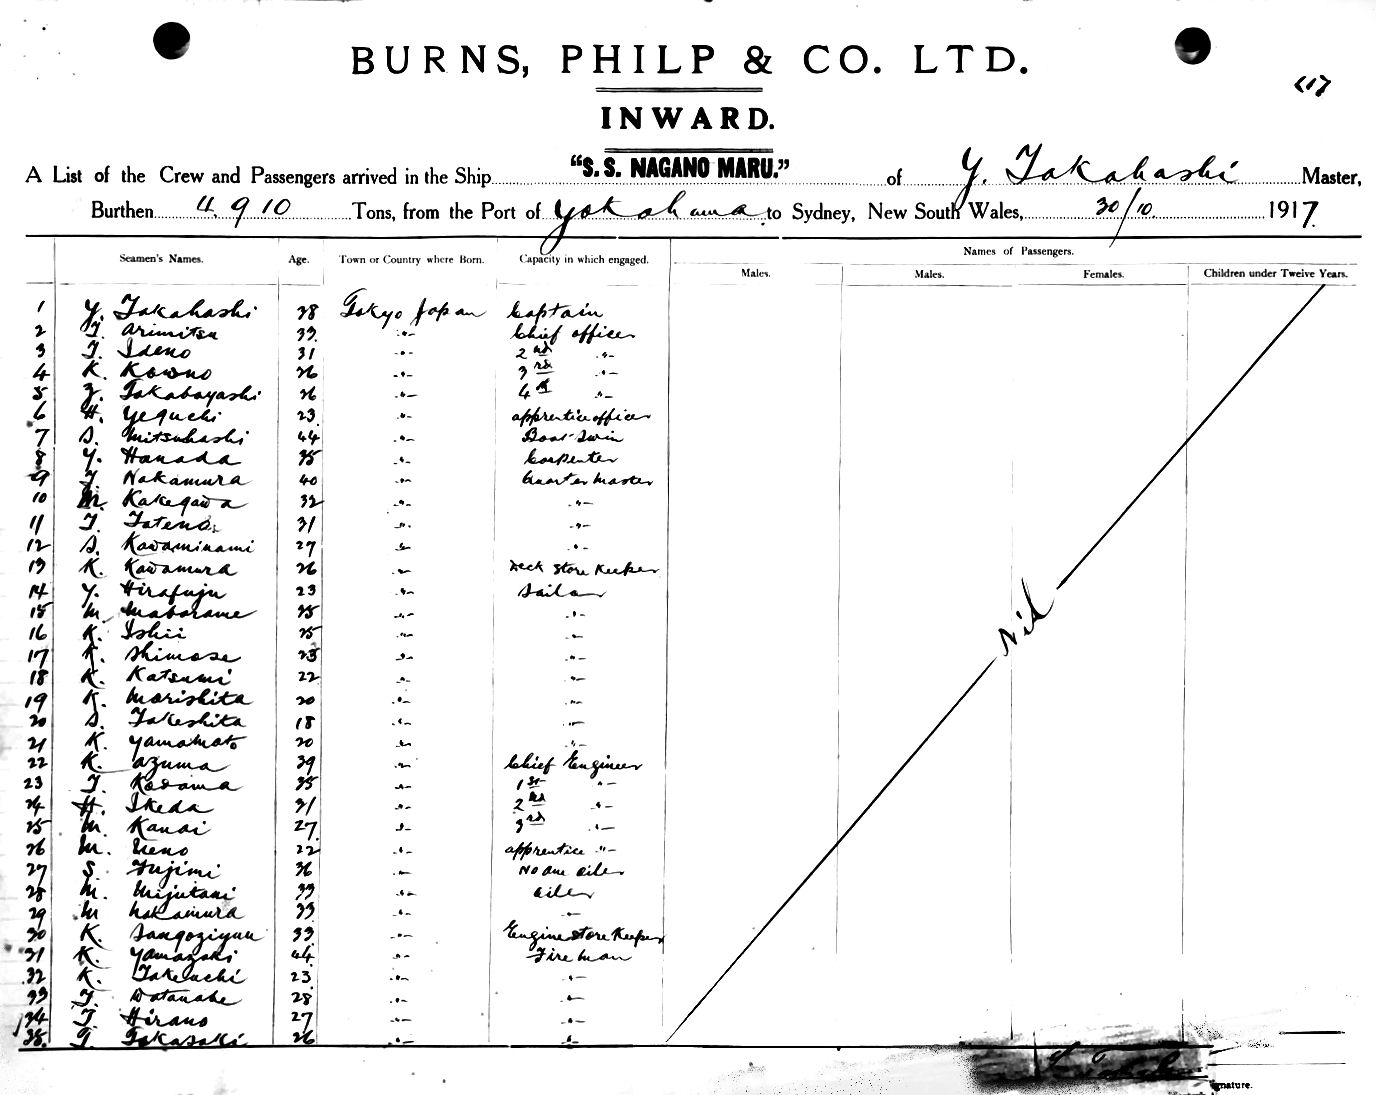 BURNS, PHILP & CO. LTD.
INWARD.
A List of the Crew and Passengers arrived in the Ship "S. S. NAGANO MARU." of Y. Takahashi Master,
Burthen 4910 Tons, from the Port of Yokohama to Sydney, New South Wales, 30/10. 1917.
Names of Passengers.
Seamen's Names. Age. Town or Country where Born. Capacity in which engaged. Males. Males. Females. Children under Twelve Years.
1 Y. Takahashi 38 Tokyo Japan Captain
2 T. Arimitsu 33 -"- Chief officer
3 T. Ideno 31 -"- 2nd -"-
4 K. Kowno 26 -"- 3rd -"-
5 Z. Takabayashi 26 -"- 4th -"-
6 H. Yeguchi 23 -"- apprentice officer
7 S. Mitsuhashi 44 -"- Boat Swin
8 Y. Hanada 35 -"- Carpenter
9 T. Nakamura 40 -"- Quarter Master
10 M. Kakegawa 32 -"- -"-
11 T. Tateno 31 -"- -"-
12 S. Kawaminami 27 -"- -"-
13 K. Kawamura 26 -"- Deck Store Keeper
14 Y. Hirafuju 23 -"- Sailor
15 M. Mabarame 35 -"- -"-
16 K. Ishii 25 -"- -"-
17 K. Shimose 23 -"- -"-
18 K. Katsumi 22 -"- -"-
19 K. Morishita 20 -"- -"-
20 S. Takeshita 18 -"- -"-
21 K. Yamamoto 20 -"- -"-
22 K. Azuma 39 -"- Chief Engineer
23 T. Kodama 35 -"- 1st -"-
24 H. Ikeda 31 -"- 2nd -"-
25 M. Kanai 27 -"- 3rd -"-
26 M. Ueno 22 -"- apprentice -"-
27 S. Fujimi 36 -"- No One oiler
28 M. Mijutani 33 -"- oiler
29 M. Nakamura 33 -"- -"-
30 K. Sangoziyuu 33 -"- Engine Store Keeper
31 K. Yamazaki 44 -"- Fire Man
32 K. Takeuchi 23 -"- -"-
33 T. Watanabe 28 -"- -"-
34 T. Hirano 27 -"- -"-
35. T. Takasaki 26 -"- -"-
Nil